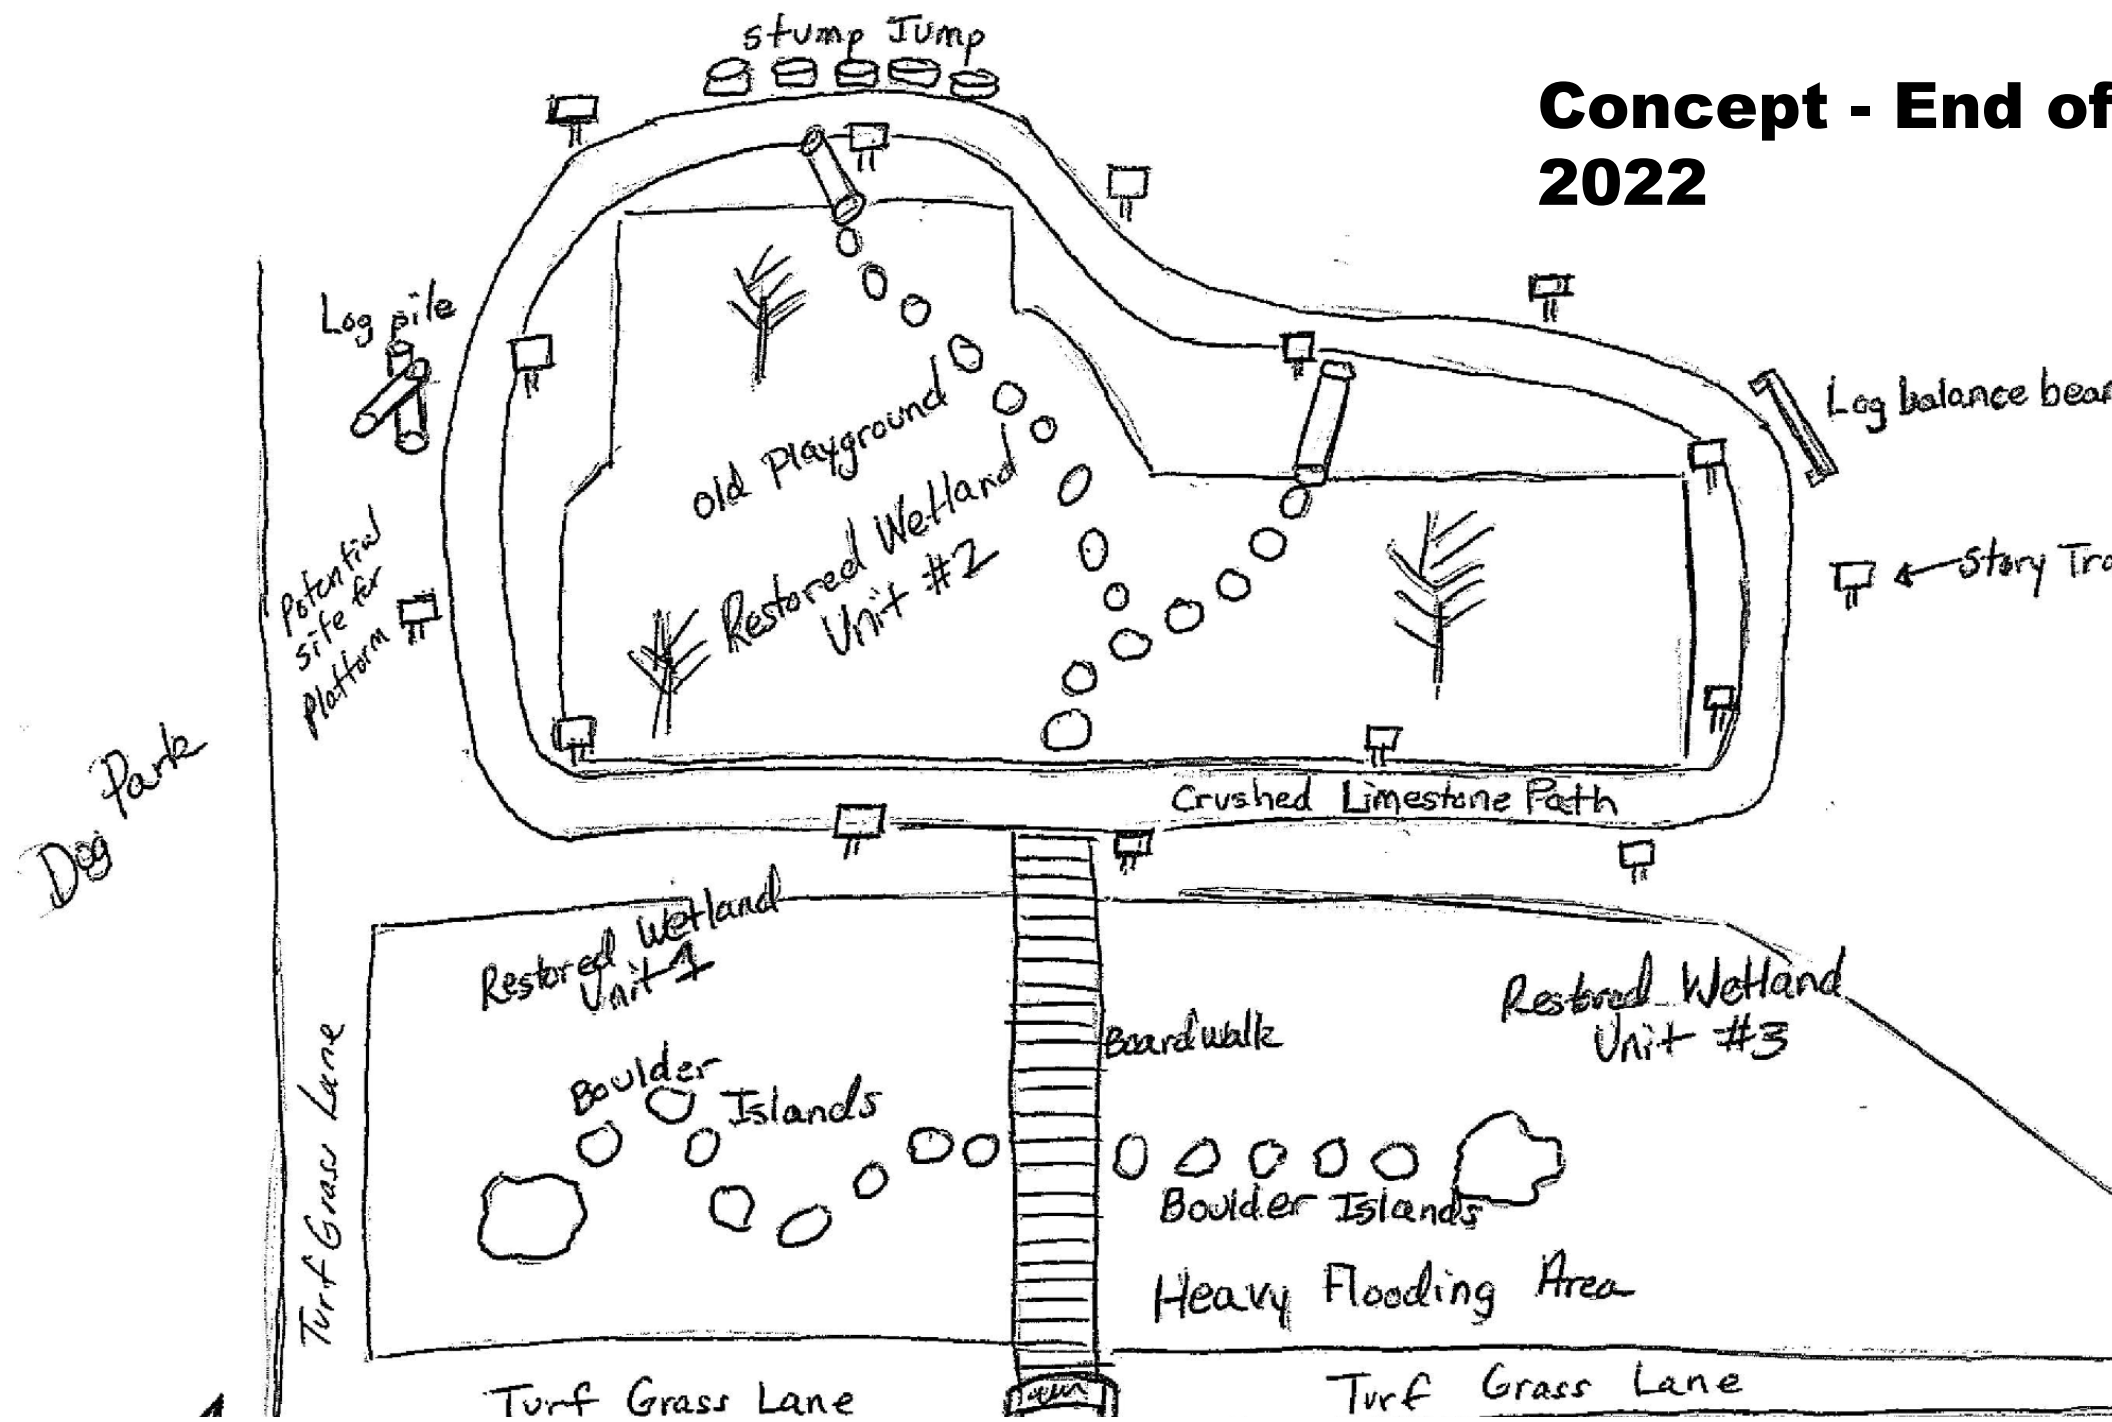 stump Jump
Concept - End of
2022
Log pile
Log balance bear
old Playground
Restored Wetland
Unit #2
Potential
site for
Platform
Story Tra
Dog Park
Crushed Limestone Path
Restored Wetland
Unit 1
Restored Wetland
Unit #3
Boardwalk
Boulder
Islands
Boulder Islands
Heavy Flooding Area
Turf Grass Lane
Turf Grass Lane
Turf Grass Lane